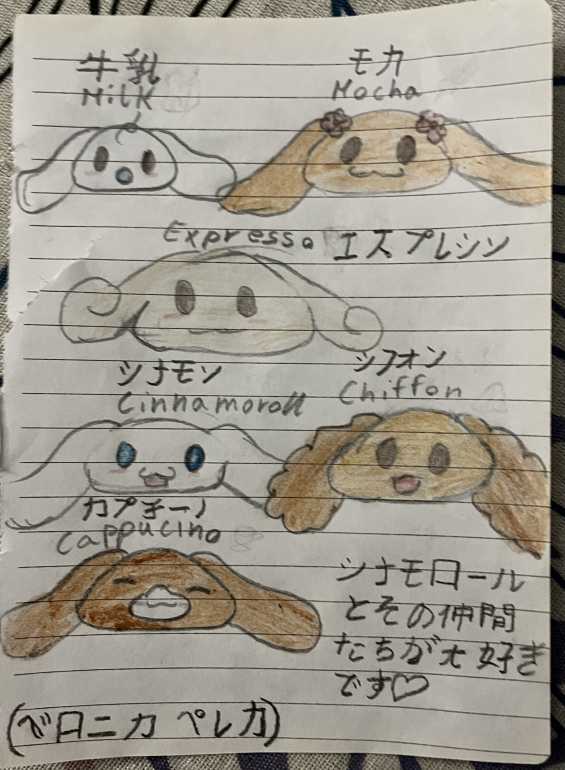 牛乳
Milk
モカ
Mocha
Expresso エスプレシソ
シナモソ
Cinnamoroll
シフオン
Chiffon
カプチーノ
Cappucino
シナモロール
とその仲間
たちが大好き
です♡
(ベロニカ ペレカ)